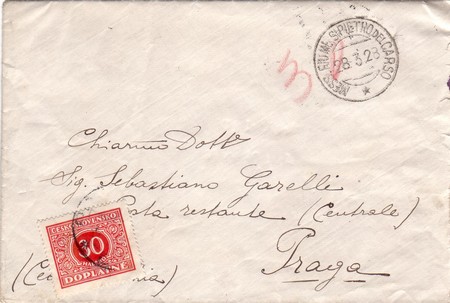 MESS. FIUME-S. PIETRO DEL CARSO
28.3.28
Chiarmo Dott
Sig. Sebastiano Garelli
Posta restante (Centrale)
Praga
ČESKOSLOVENSKO
60
DOPLATNÉ